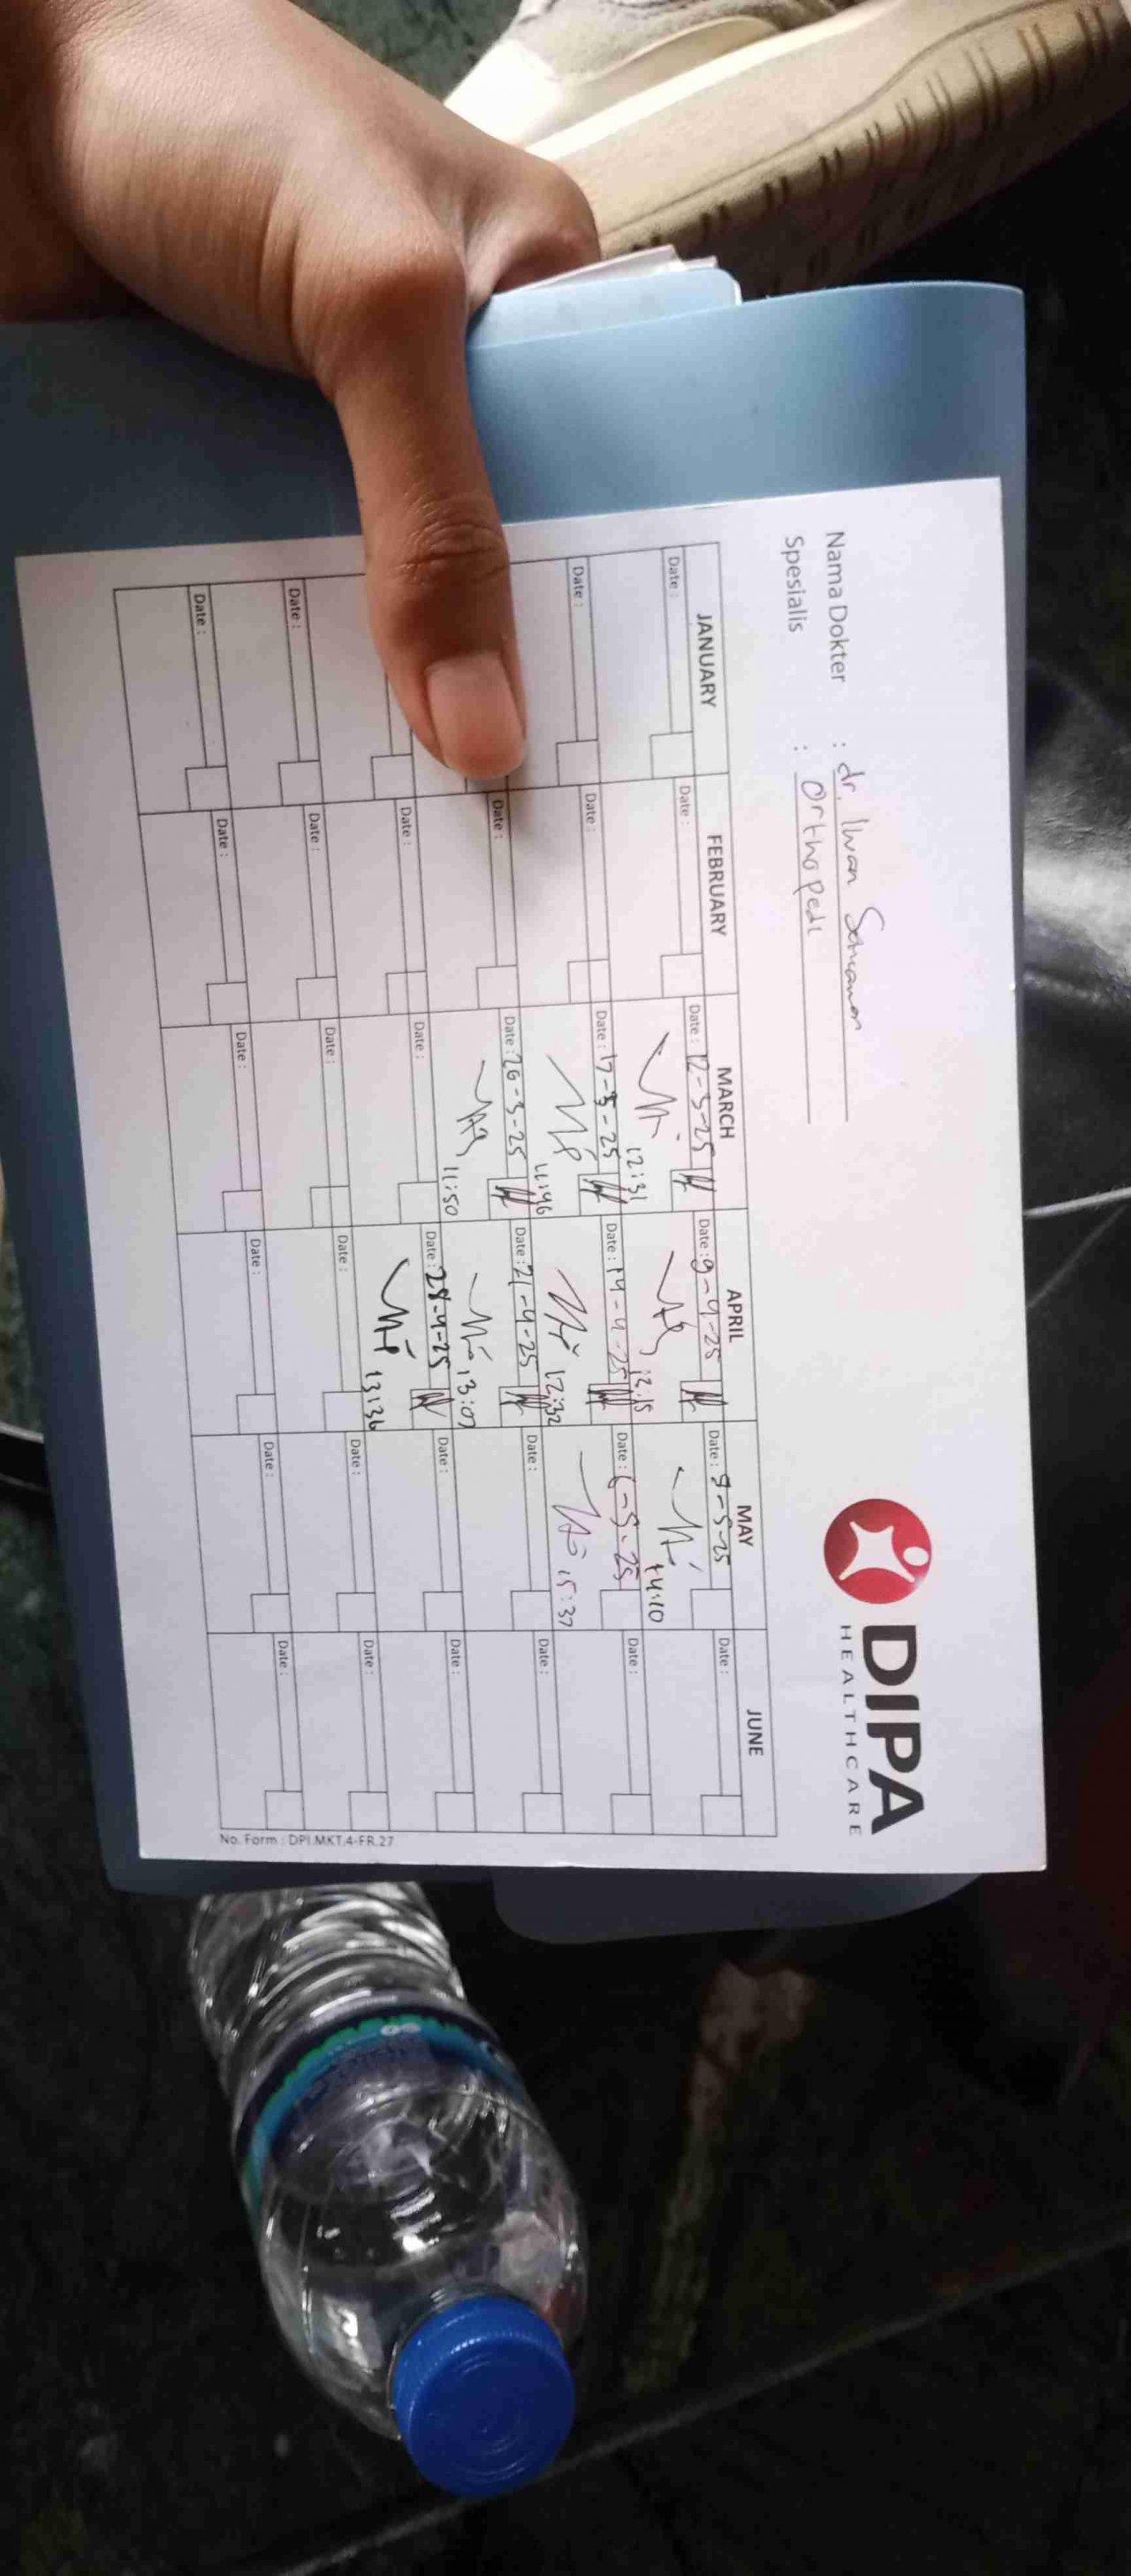 DIPA
HEALTHCARE
Nama Dokter : dr. Iwan
Spesialis : Orthopedi
JANUARY FEBRUARY MARCH APRIL MAY JUNE
Date : Date : Date : 12-3-25 Date : 9-4-25 Date : 9-5-25 Date :
12:31 12.15 14:10
Date : Date : Date : 17-3-25 Date : 14-4-25 Date : 6-5-25 Date :
11:46 12:32 15:37
Date : Date : 26-3-25 Date : 21-4-25 Date : Date :
11:50 13:07
Date : Date : Date : 28-4-25 Date : Date :
13:36
Date : Date : Date : Date : Date : Date :
Date : Date : Date : Date : Date : Date :
No. Form : DPI.MKT.4-FR.27